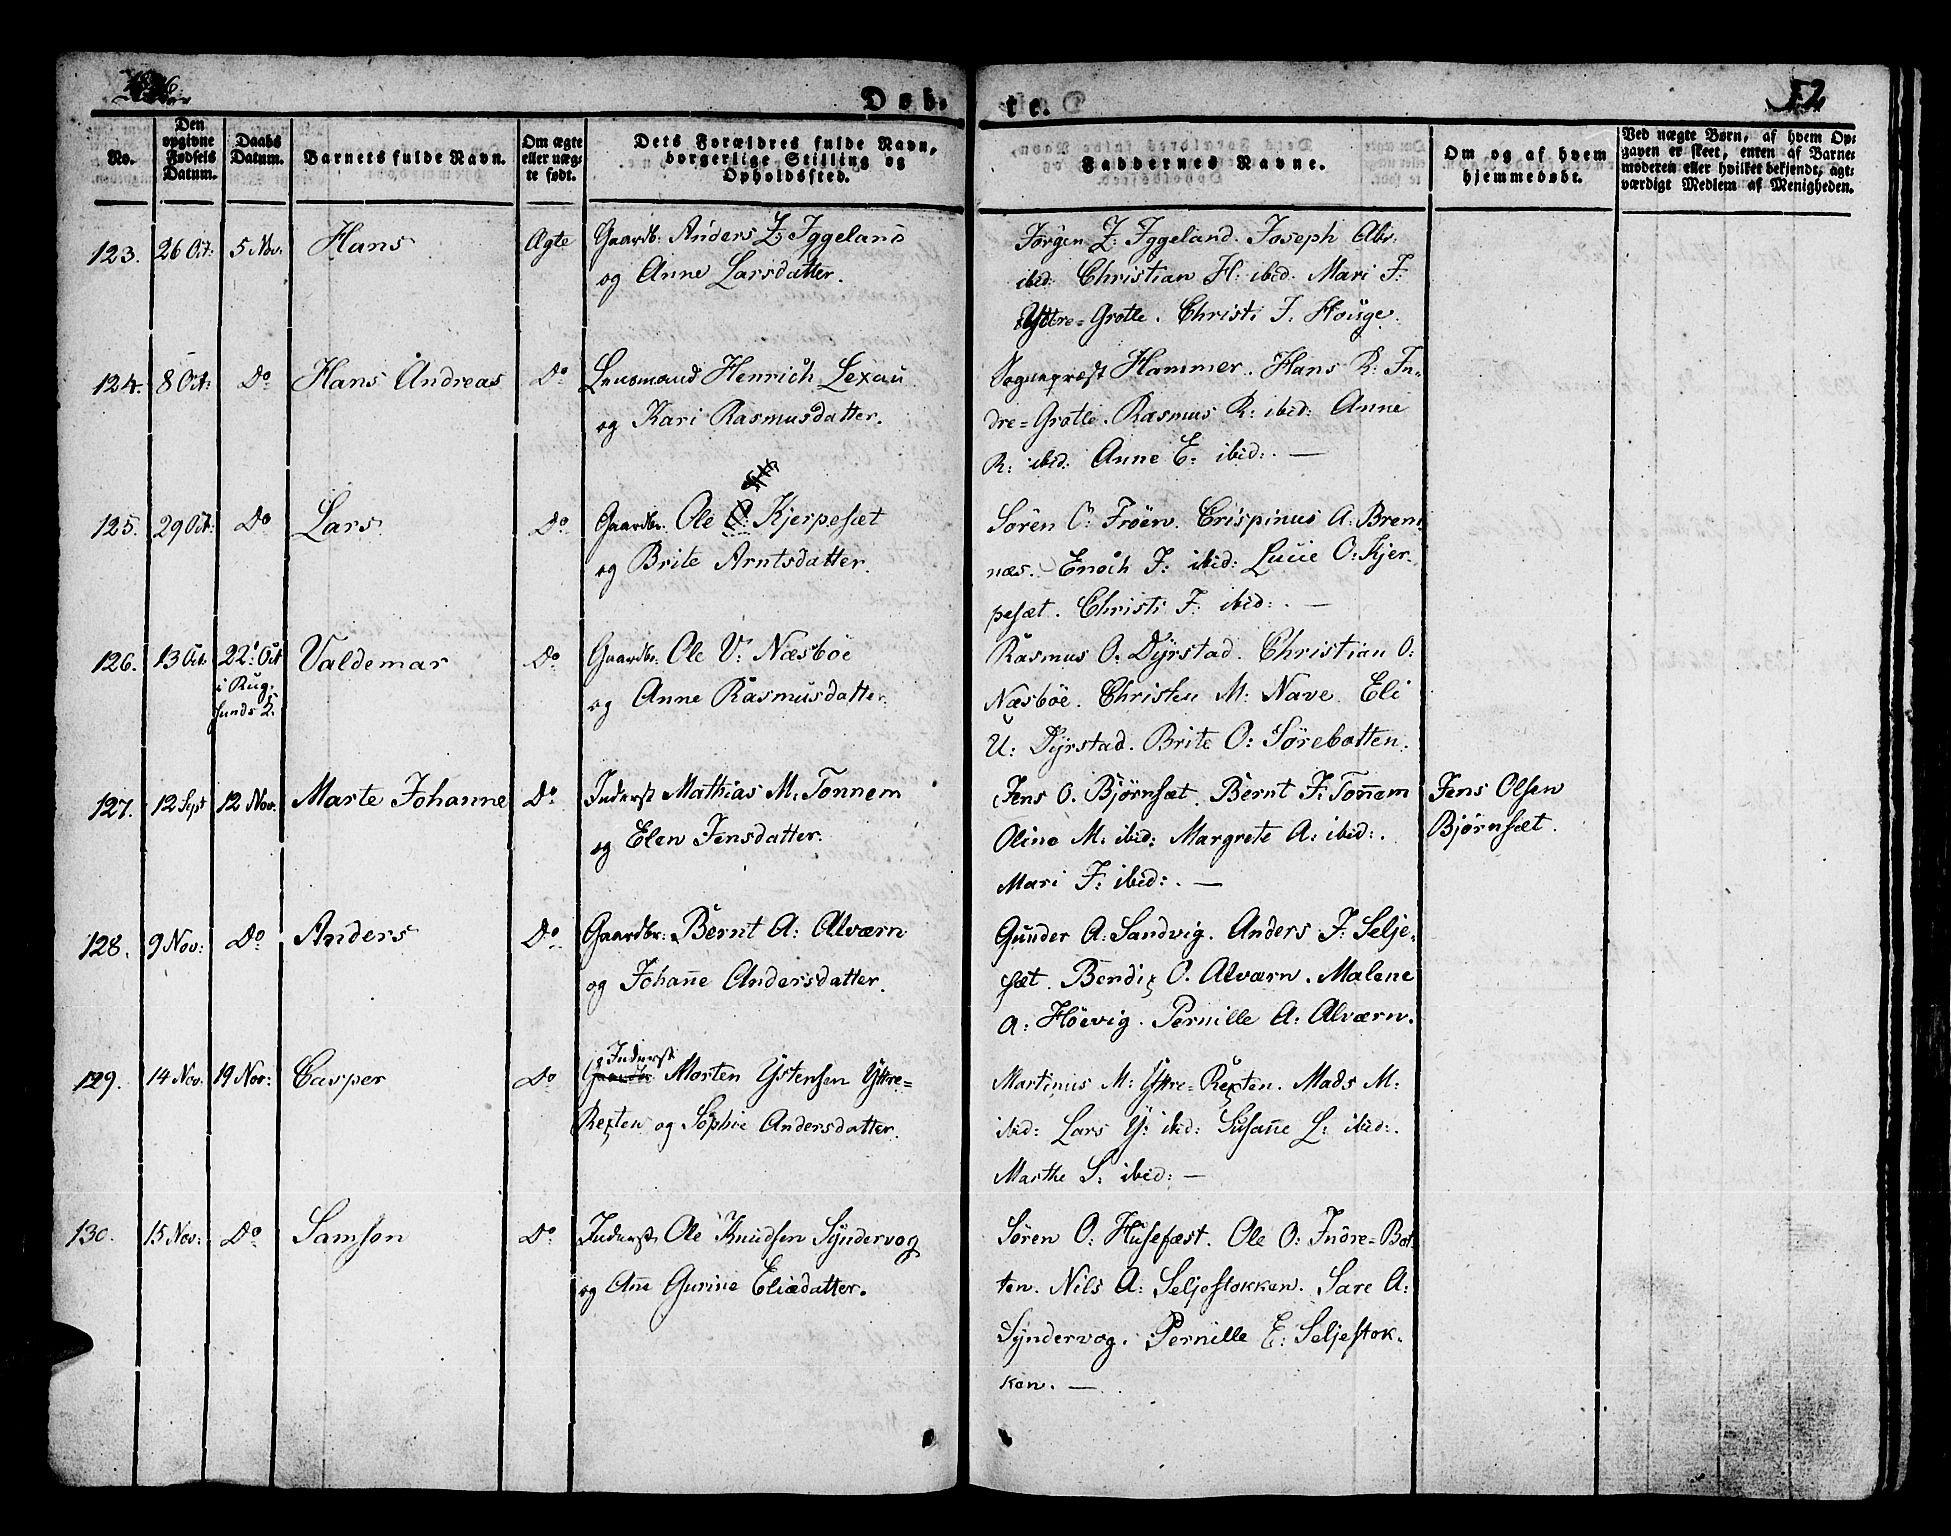 1826
Døb-
te.
52
No.
Den opgivne Fødsels Datum.
Daabs Datum.
Barnets fulde Navn.
Om ægte eller uægte født.
Dets Forældres fulde Navn, borgerlige Stilling og Opholdssted.
Faddernes Navne.
Om og af hvem hjemmedøbt.
Ved uægte Børn, af hvem Opgaven er skeet, enten af Barnemoderen eller hvilket bekjendt, agtværdigt Medlem af Menigheden.
123. 26 Oct: 5 Nov. Hans Ægte Gaardb: Anders Z: Iggeland
og Anne Larsdatter.
Jørgen Z: Iggeland. Joseph Abr:
ibid: Christian H: ibid. Mari J:
Yttre=Grotle. Christi J. Houge.
124. 8 Oct: Do Hans Andreas Do Lensmand Henrich Lexau
og Kari Rasmusdatter.
Sognepræst Hammer. Hans R: In-
dre=Grotle. Rasmus R: ibid: Anne
R: ibid: Anne E: ibid:. —
125. 29 Oct: Do Lars Do Gaardbr. Ole Kjerpesæt
og Brite Arntsdatter.
Sören O: Fröen. Crispinus A: Brem-
næs. Enoch J: ibid: Lucie O: Kjer-
pesæt. Christi J: ibid:. —
126. 13 Oct. 22: Oct Valdemar Do Gaardbr. Ole V: Næsböe
i Rug-
sunds K:
og Anne Rasmusdatter.
Rasmus O: Dyrstad. Christian O:
Næsböe. Christen M: Nave. Eli
U: Dyrstad. Brite O: Sörebotten.
127. 12 Sept 12 Nov. Marte Johanne Do Inderst Mathias M: Tonnem
og Elen Jensdatter.
Jens O. Bjørnsæt. Bernt J: Tonnem
Oline M: ibid: Margrete A: ibid:.
Mari J: ibid:. —
Jens Olsen
Bjørnsæt.
128. 9 Nov: Do Anders Do Gaardbr: Bernt A: Alværn
og Johanne Andersdatter.
Gunder A: Sandvig. Anders J: Selje-
sæt. Bendix O. Alværn. Malene
A: Höevig. Pernille A: Alværn.
129. 14 Nov: 19 Nov: Casper Do Inderst
Gaardbr Morten Ystensen Yttre=
Rexten og Sophie Andersdatter.
Martinus M: Yttre=Rexten. Mads M:
ibid: Lars Y: ibid: Susanne L: ibid:.
Marthe S: ibid: —
130. 15 Nov: Do Samson Do Inderst Ole Knudsen Syndervog
og Ane Gurine Eliædatter.
Sören O: Husefæst. Ole O: Indre=Bot-
ten. Nils A: Seljestokken. Sare A:
Syndervog. Pernille E: Seljestok-
ken. —